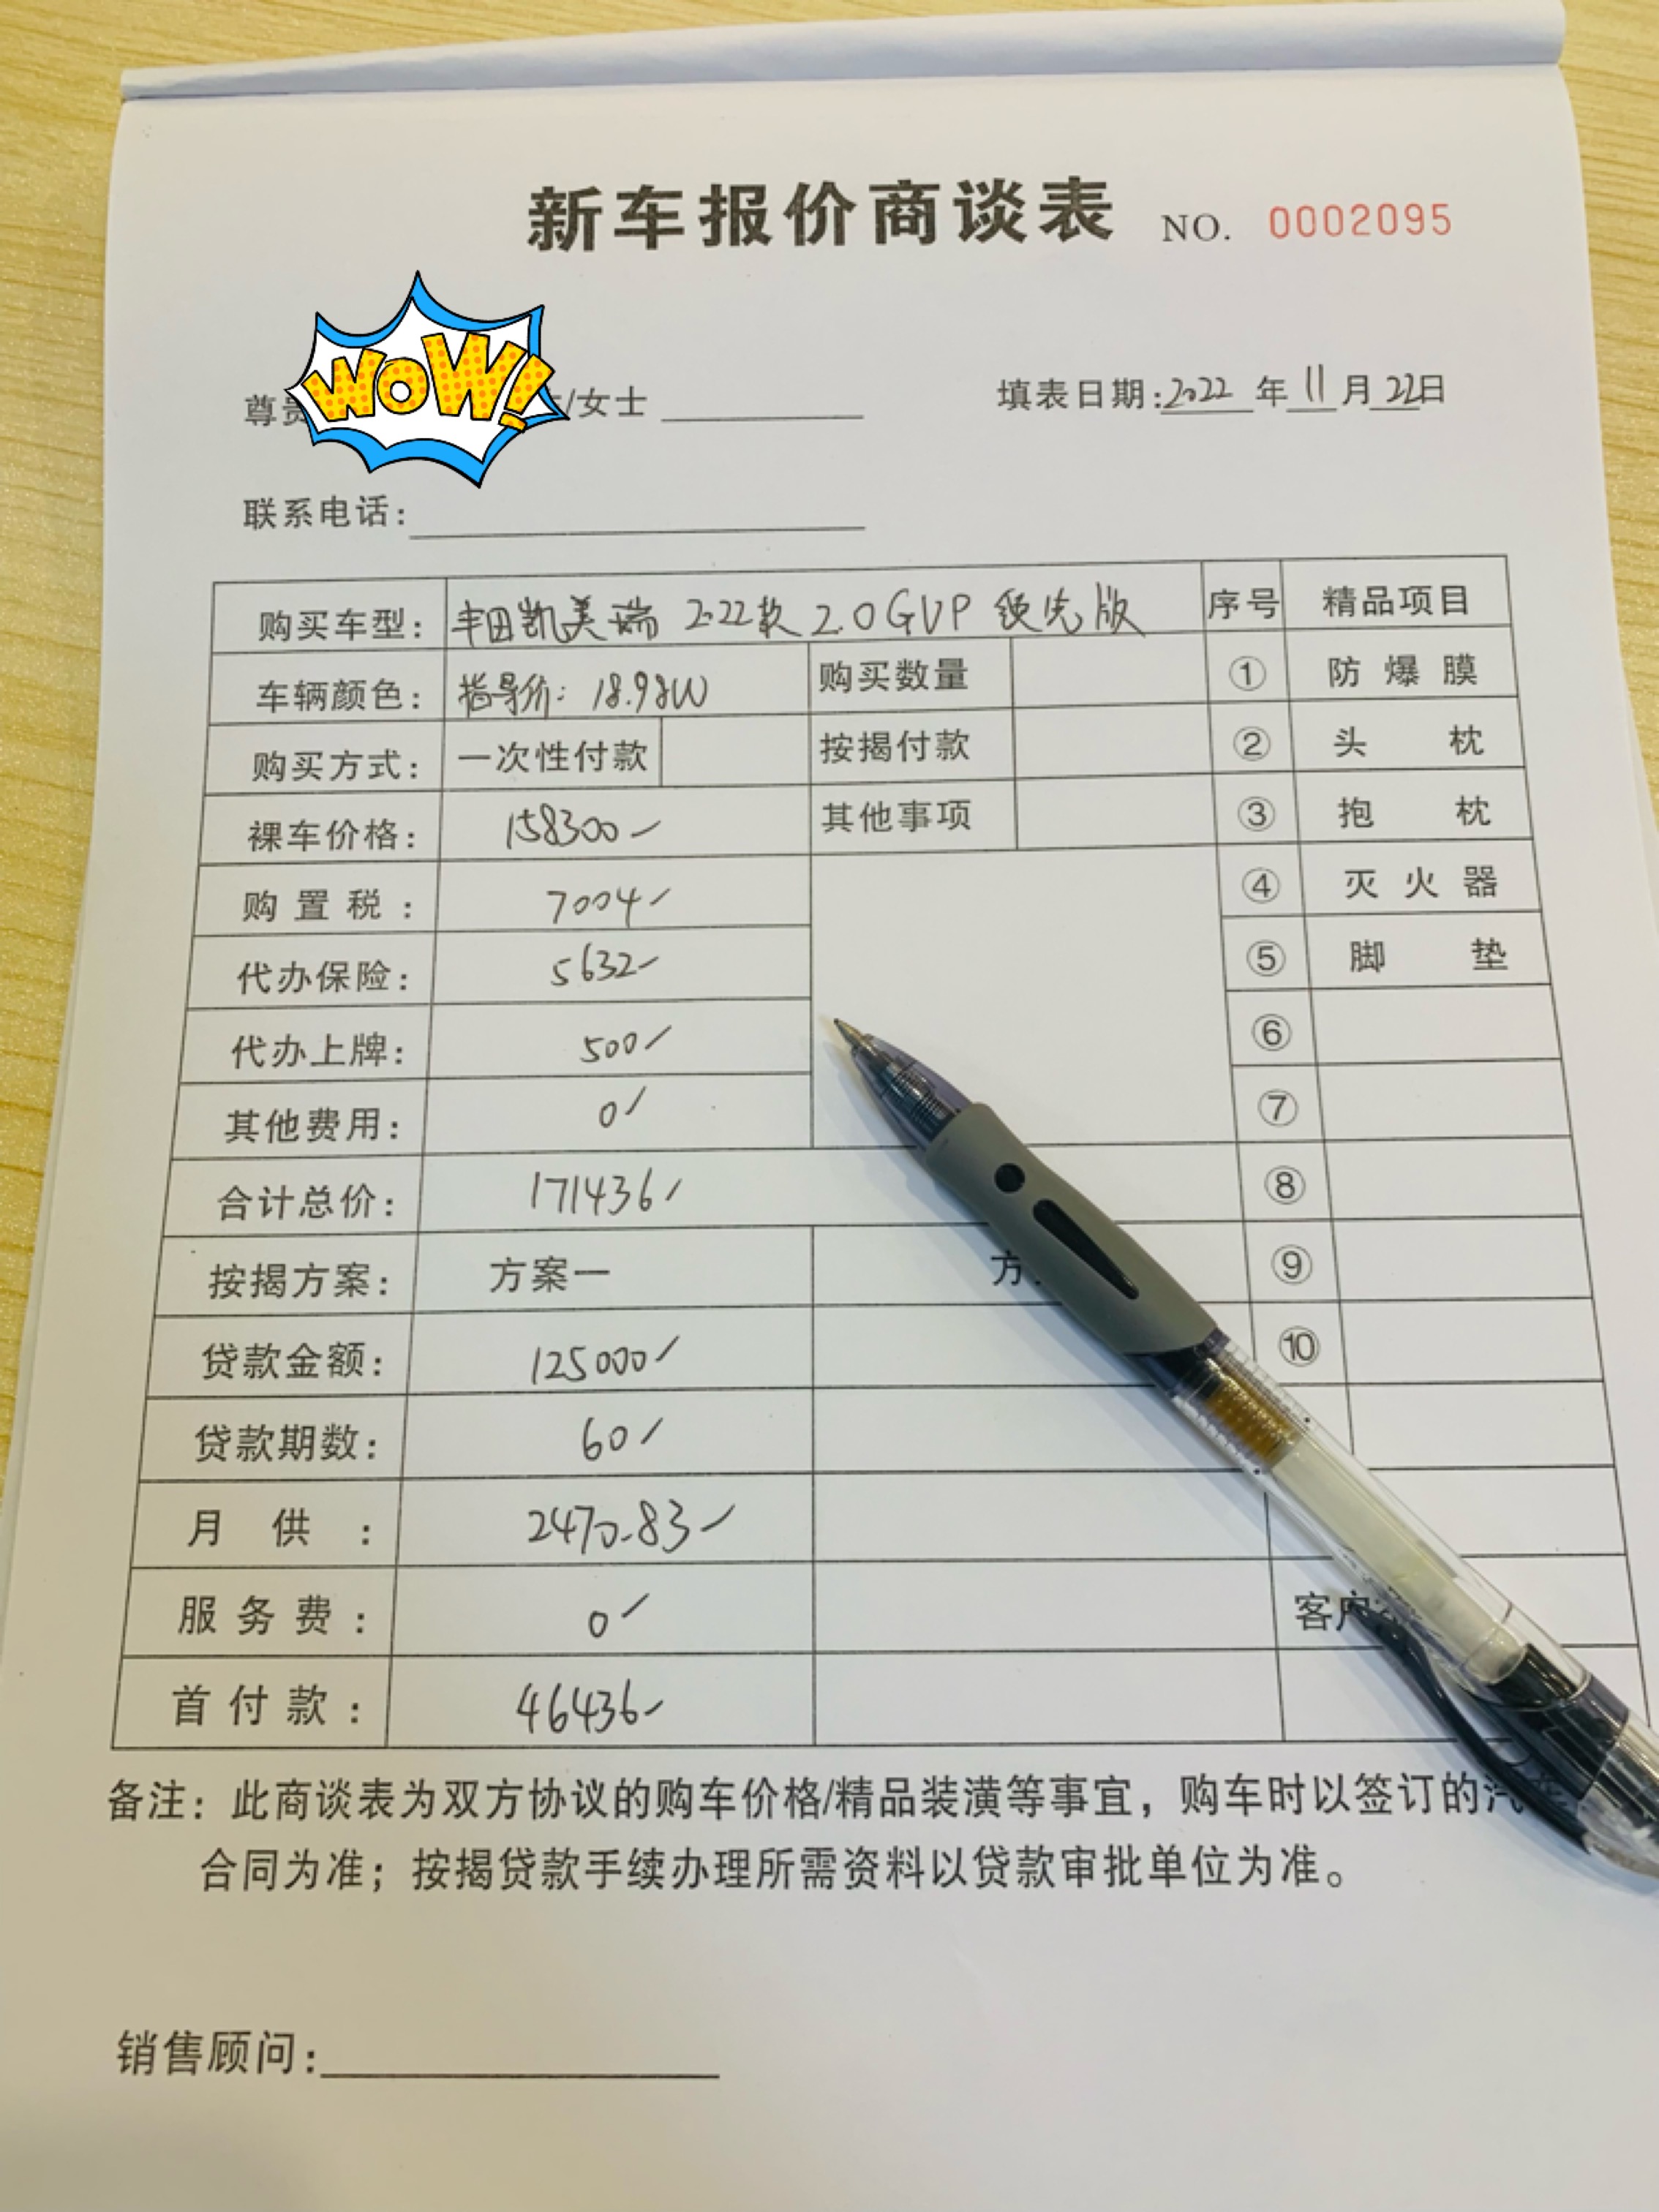 新车报价商谈表 NO. 0002095
WOW!
尊贵 /女士 填表日期:2022年11月22日
联系电话:
购买车型: 丰田凯美瑞 2022款 2.0GVP 领先版 序号 精品项目
车辆颜色: 指导价: 18.98W 购买数量 ① 防爆膜
购买方式: 一次性付款 按揭付款 ② 头枕
裸车价格: 158300 其他事项 ③ 抱枕
购置税: 7004 ④ 灭火器
代办保险: 5632 ⑤ 脚垫
代办上牌: 500 ⑥
其他费用: 0 ⑦
合计总价: 171436 ⑧
按揭方案: 方案一 方 ⑨
贷款金额: 125000 ⑩
贷款期数: 60
月供: 2470.83
服务费: 0 客户
首付款: 46436
备注: 此商谈表为双方协议的购车价格/精品装潢等事宜，购车时以签订的汽车
合同为准；按揭贷款手续办理所需资料以贷款审批单位为准。
销售顾问: